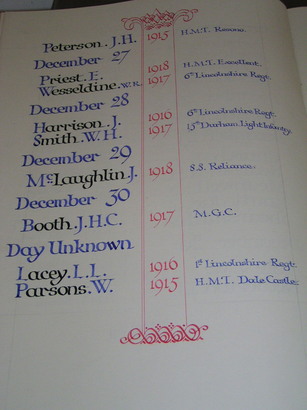 Peterson. J.H. 1915 H.M.T. Resono.
December 27
Priest. E. 1918 H.M.T. Excellent.
Wesseldine. W.R. 1917 6th Lincolnshire Regt.
December 28
Harrison. J. 1916 6th Lincolnshire Regt.
Smith. W.H. 1917 15th Durham Light Infantry.
December 29
McLaughlin. J. 1918 S.S. Reliance.
December 30
Booth. J.H.C. 1917 M.G.C.
Day Unknown
Lacey. L.L. 1916 1st Lincolnshire Regt.
Parsons. W. 1915 H.M.T. Dale Castle.